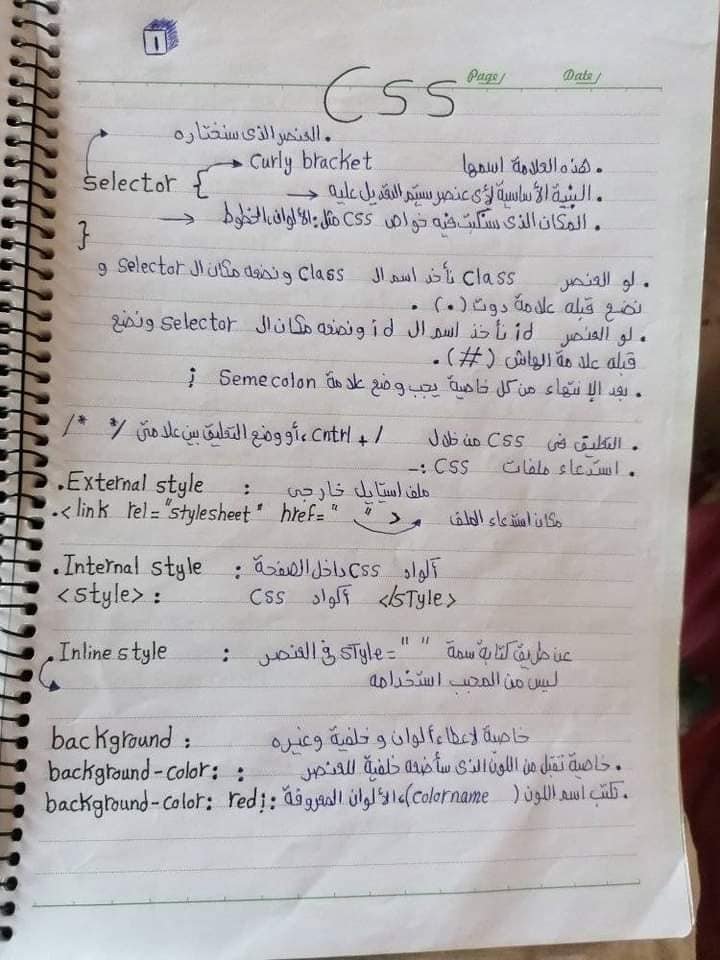 1
Page/ Date/
CSS
. العنصر الذى سنختاره
. هذه العلامة اسمها Curly bracket
selector {
. البنية الأساسية لأى عنصر سيتم التعديل عليه
. المكان الذى ستكتب فيه خواص CSS مثل: الألوان، الخطوط
}
. لو العنصر Class نأخذ اسم ال Class و نضعه مكان ال selector و
نضع قبله علامة دوت (.) .
. لو العنصر id نأخذ اسم ال id ونضعه مكان ال selector ونضع
قبله علامة الهاش (#) .
. بعد الإنتهاء من كل خاصية يجب وضع علامة Semecolon ;
. التعليق فى CSS من خلال Cntrl + / ،أو وضع التعليق بين علامتى /* */
. استدعاء ملفات CSS :-
.External style : ملف استايل خارجى
.<link rel="stylesheet" href=" " > مكان استدعاء الملف
.Internal style : أكواد CSS داخل الصفحة
<style> : أكواد CSS </sTyle>
.Inline style : عن طريق كتابة سمة sTyle=" " فى العنصر
ليس من المحبب استخدامه
background : خاصية لإعطاء ألوان و خلفية وغيره
background-color: : . خاصية تقبل من اللون الذى سأضعه خلفية للعنصر
background-color: red; : . نكتب اسم اللون (colorname)، الألوان المعروفة